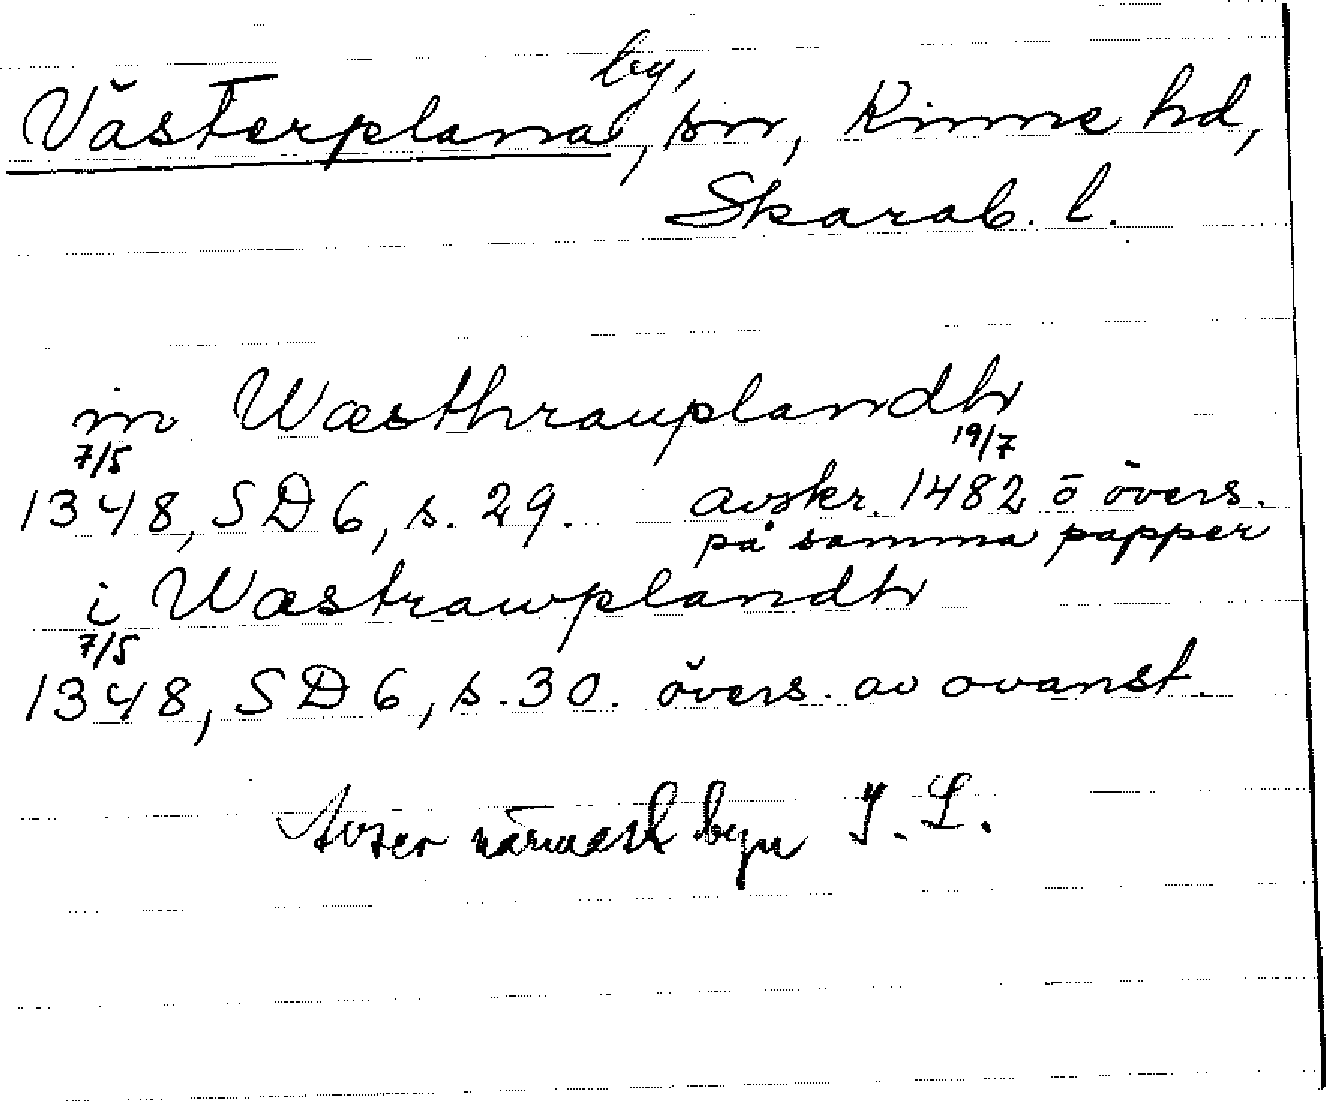 Västerplana by, sn, Kinne hd,
Skarab. l.
in Wæsthrauplandh
7/5 19/7
1348, SD 6, s. 29. avskr. 1482 o övers.
på samma papper
i Wæstrawplandh
7/5
1348, SD 6, s. 30. övers. av ovanst.
Avser närmast byn I. L.